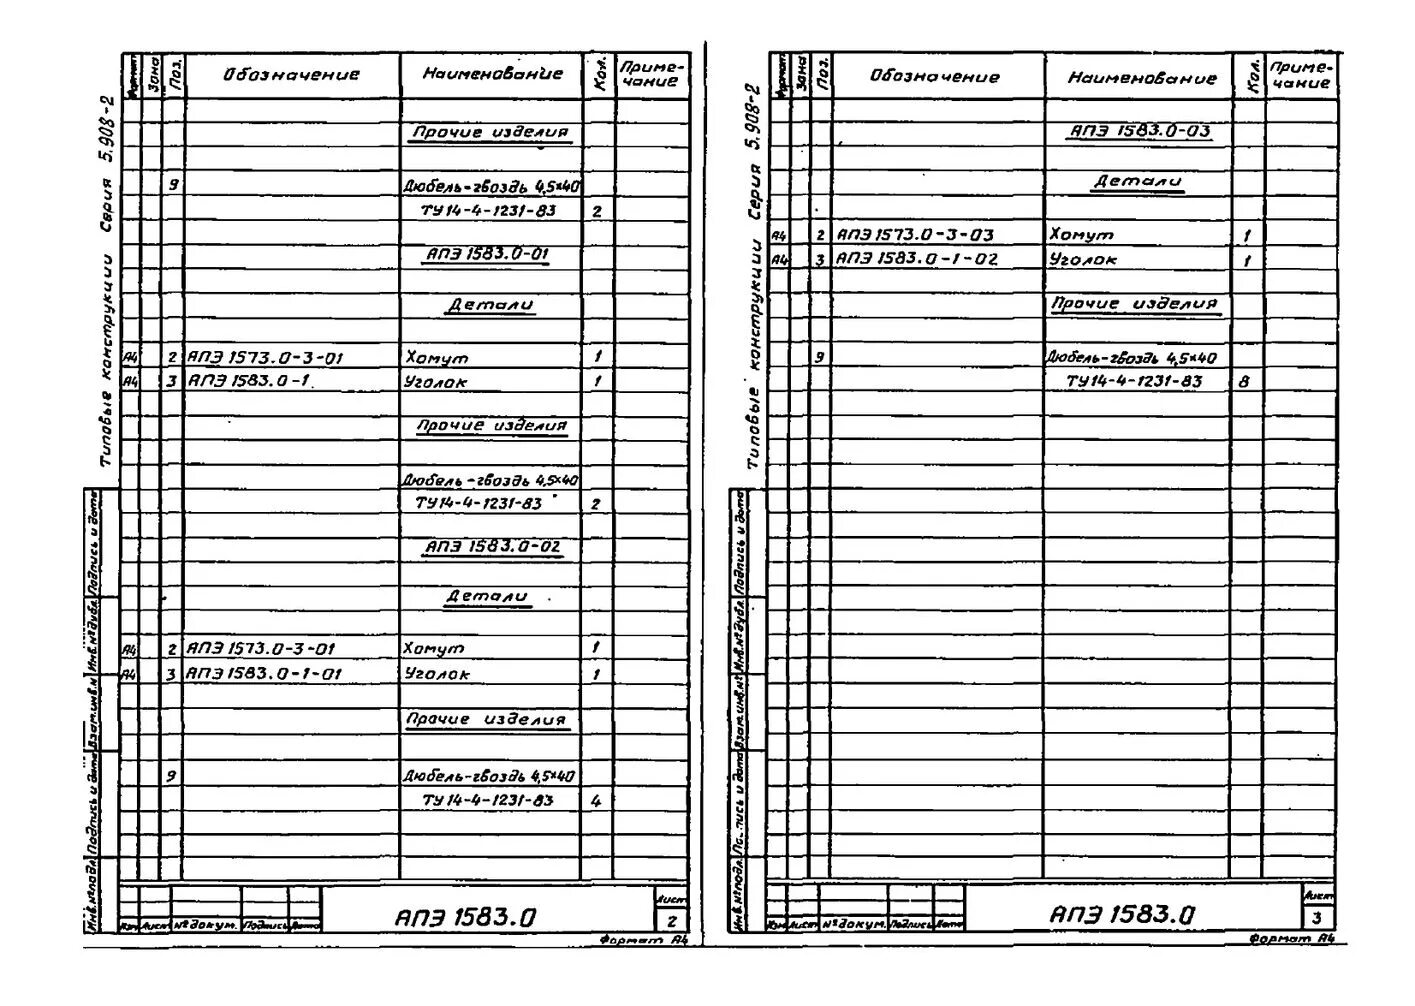 Типовые конструкции Серия 5.908-2
Формат Зона Поз. Обозначение Наименование Кол. Приме-
чание
Прочие изделия
9 Дюбель-гвоздь 4,5×40
ТУ14-4-1231-83 2
АПЭ 1583.0-01
Детали
А4 2 АПЭ 1573.0-3-01 Хомут 1
А4 3 АПЭ 1583.0-1 Уголок 1
Прочие изделия
Дюбель-гвоздь 4,5×40
ТУ14-4-1231-83 2
АПЭ 1583.0-02
Детали
А4 2 АПЭ 1573.0-3-01 Хомут 1
А4 3 АПЭ 1583.0-1-01 Уголок 1
Прочие изделия
9 Дюбель-гвоздь 4,5×40
ТУ14-4-1231-83 4
Инв.№подл. Подпись и дата Взам.инв.№ Инв.№дубл. Подпись и дата
Изм Лист №докум. Подпись Дата
АПЭ 1583.0
Лист
2
Формат А4
Типовые конструкции Серия 5.908-2
Формат Зона Поз. Обозначение Наименование Кол. Приме-
чание
АПЭ 1583.0-03
Детали
А4 2 АПЭ 1573.0-3-03 Хомут 1
А4 3 АПЭ 1583.0-1-02 Уголок 1
Прочие изделия
9 Дюбель-гвоздь 4,5×40
ТУ14-4-1231-83 8
Инв.№подл. Подпись и дата Взам.инв.№ Инв.№дубл. Подпись и дата
Изм Лист №докум. Подпись Дата
АПЭ 1583.0
Лист
3
Формат А4